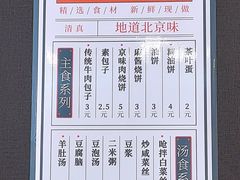 精选食材 新鲜现做
清真 地道北京味
主食系列
传统牛肉包子 3元
素包子 2.5元
京味肉烧饼 5元
麻酱烧饼 3元
油饼 3元
糖油饼 4元
茶叶蛋 2元
汤食系
羊肚汤
豆腐脑
豆泡汤
二米粥
豆浆
炒咸菜丝
呛拌白菜丝